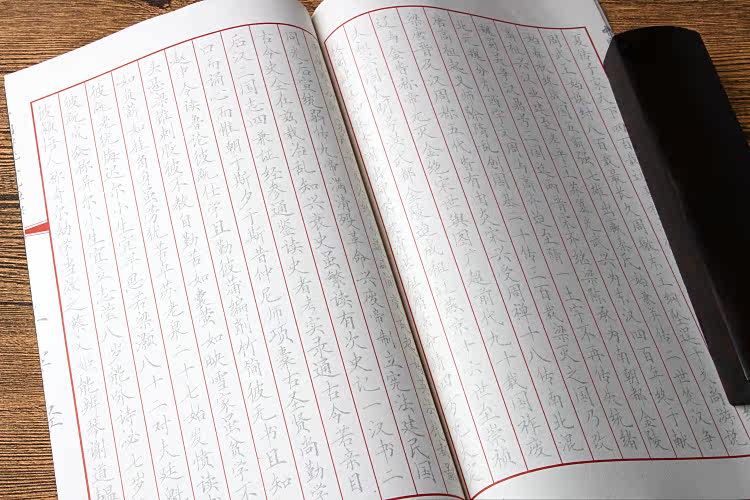 夏传子家天下
周武王始诛纣八百载最长久周辙东王纲坠逞干戈尚游说
始春秋终战国五霸强七雄出嬴秦氏始兼并传二世楚汉争
高祖兴汉业建至孝平王莽篡光武兴为东汉四百年终于献
魏蜀吴争汉鼎号三国迄两晋宋齐继梁陈承为南朝都金陵
北元魏分东西宇文周与高齐迨至隋一土宇不再传失统绪
唐高祖起义师除隋乱创国基二十传三百载梁灭之国乃改
梁唐晋及汉周称五代皆有由炎宋兴受周禅十八传南北混
辽与金皆称帝元灭金绝宋世舆图广超前代九十载国祚废
太祖兴国大明号洪武都金陵迨成祖迁燕京十六世至崇祯
同光后宣统弱传九帝满清殁革命兴废帝制立宪法建民国
古今史全在兹载治乱知兴衰史虽繁读有次史记一汉书二
后汉三国志四兼证经参通鉴读史者考实录通古今若亲目
口而诵心而惟朝于斯夕于斯昔仲尼师项橐古圣贤尚勤学
赵中令读鲁论彼既仕学且勤披蒲编削竹简彼无书且知
头悬梁锥刺股彼不教自勤苦如囊萤如映雪家虽贫学不
如负薪如挂角身虽劳犹苦卓苏老泉二十七始发愤读
彼既老犹悔迟尔小生宜早思若梁灏八十二对大廷魁
彼既成众称异尔小生宜立志莹八岁能咏诗泌七岁
彼颖悟人称奇尔幼学当效之蔡文姬能辨琴谢道韫